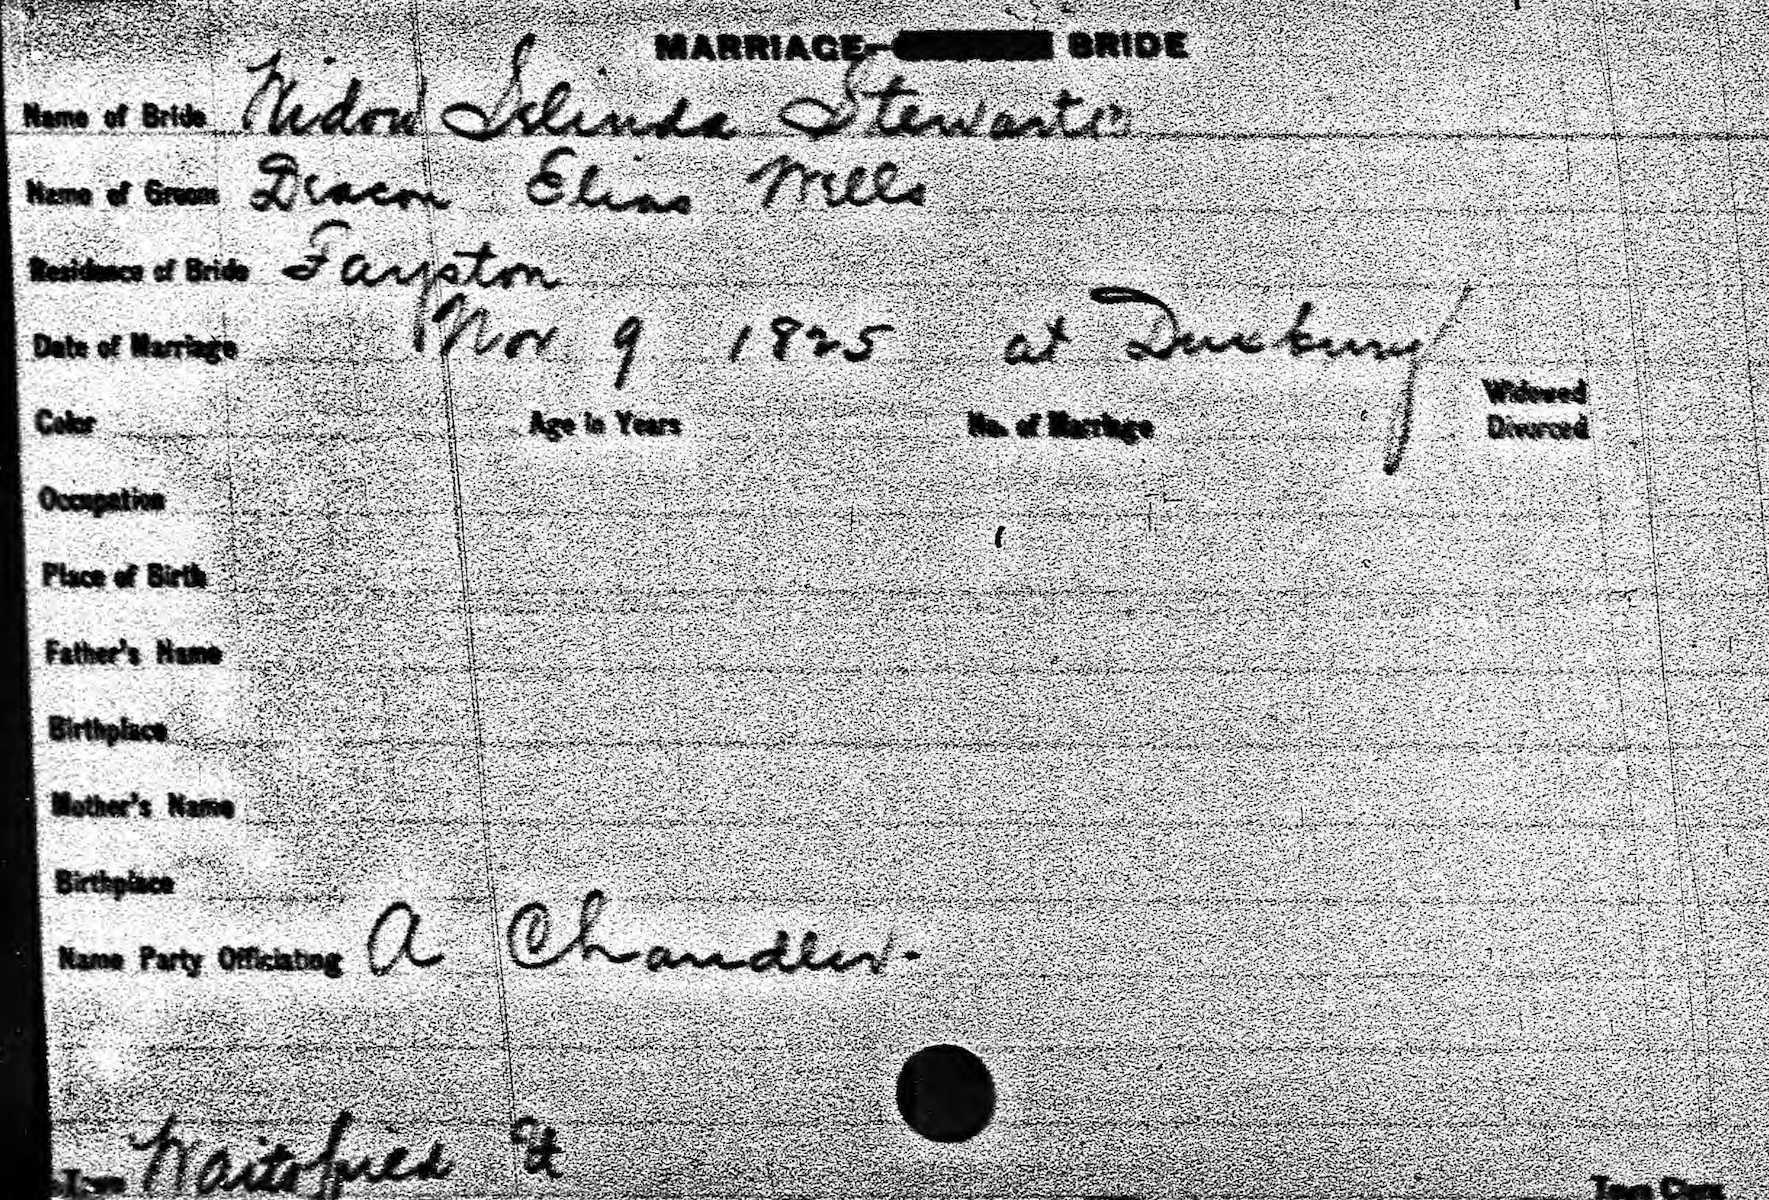 MARRIAGE- BRIDE
Name of Bride Widow Selinda Stewart
Name of Groom Deacon Elias Wells
Residence of Bride Fayston
Date of Marriage Nov 9 1825 at Duxbury
Color Age in Years No. of Marriage Widowed Divorced
Occupation
Place of Birth
Father's Name
Birthplace
Mother's Name
Birthplace
Name Party Officiating A Chandler.
Town Waitsfield Vt Town Clerk